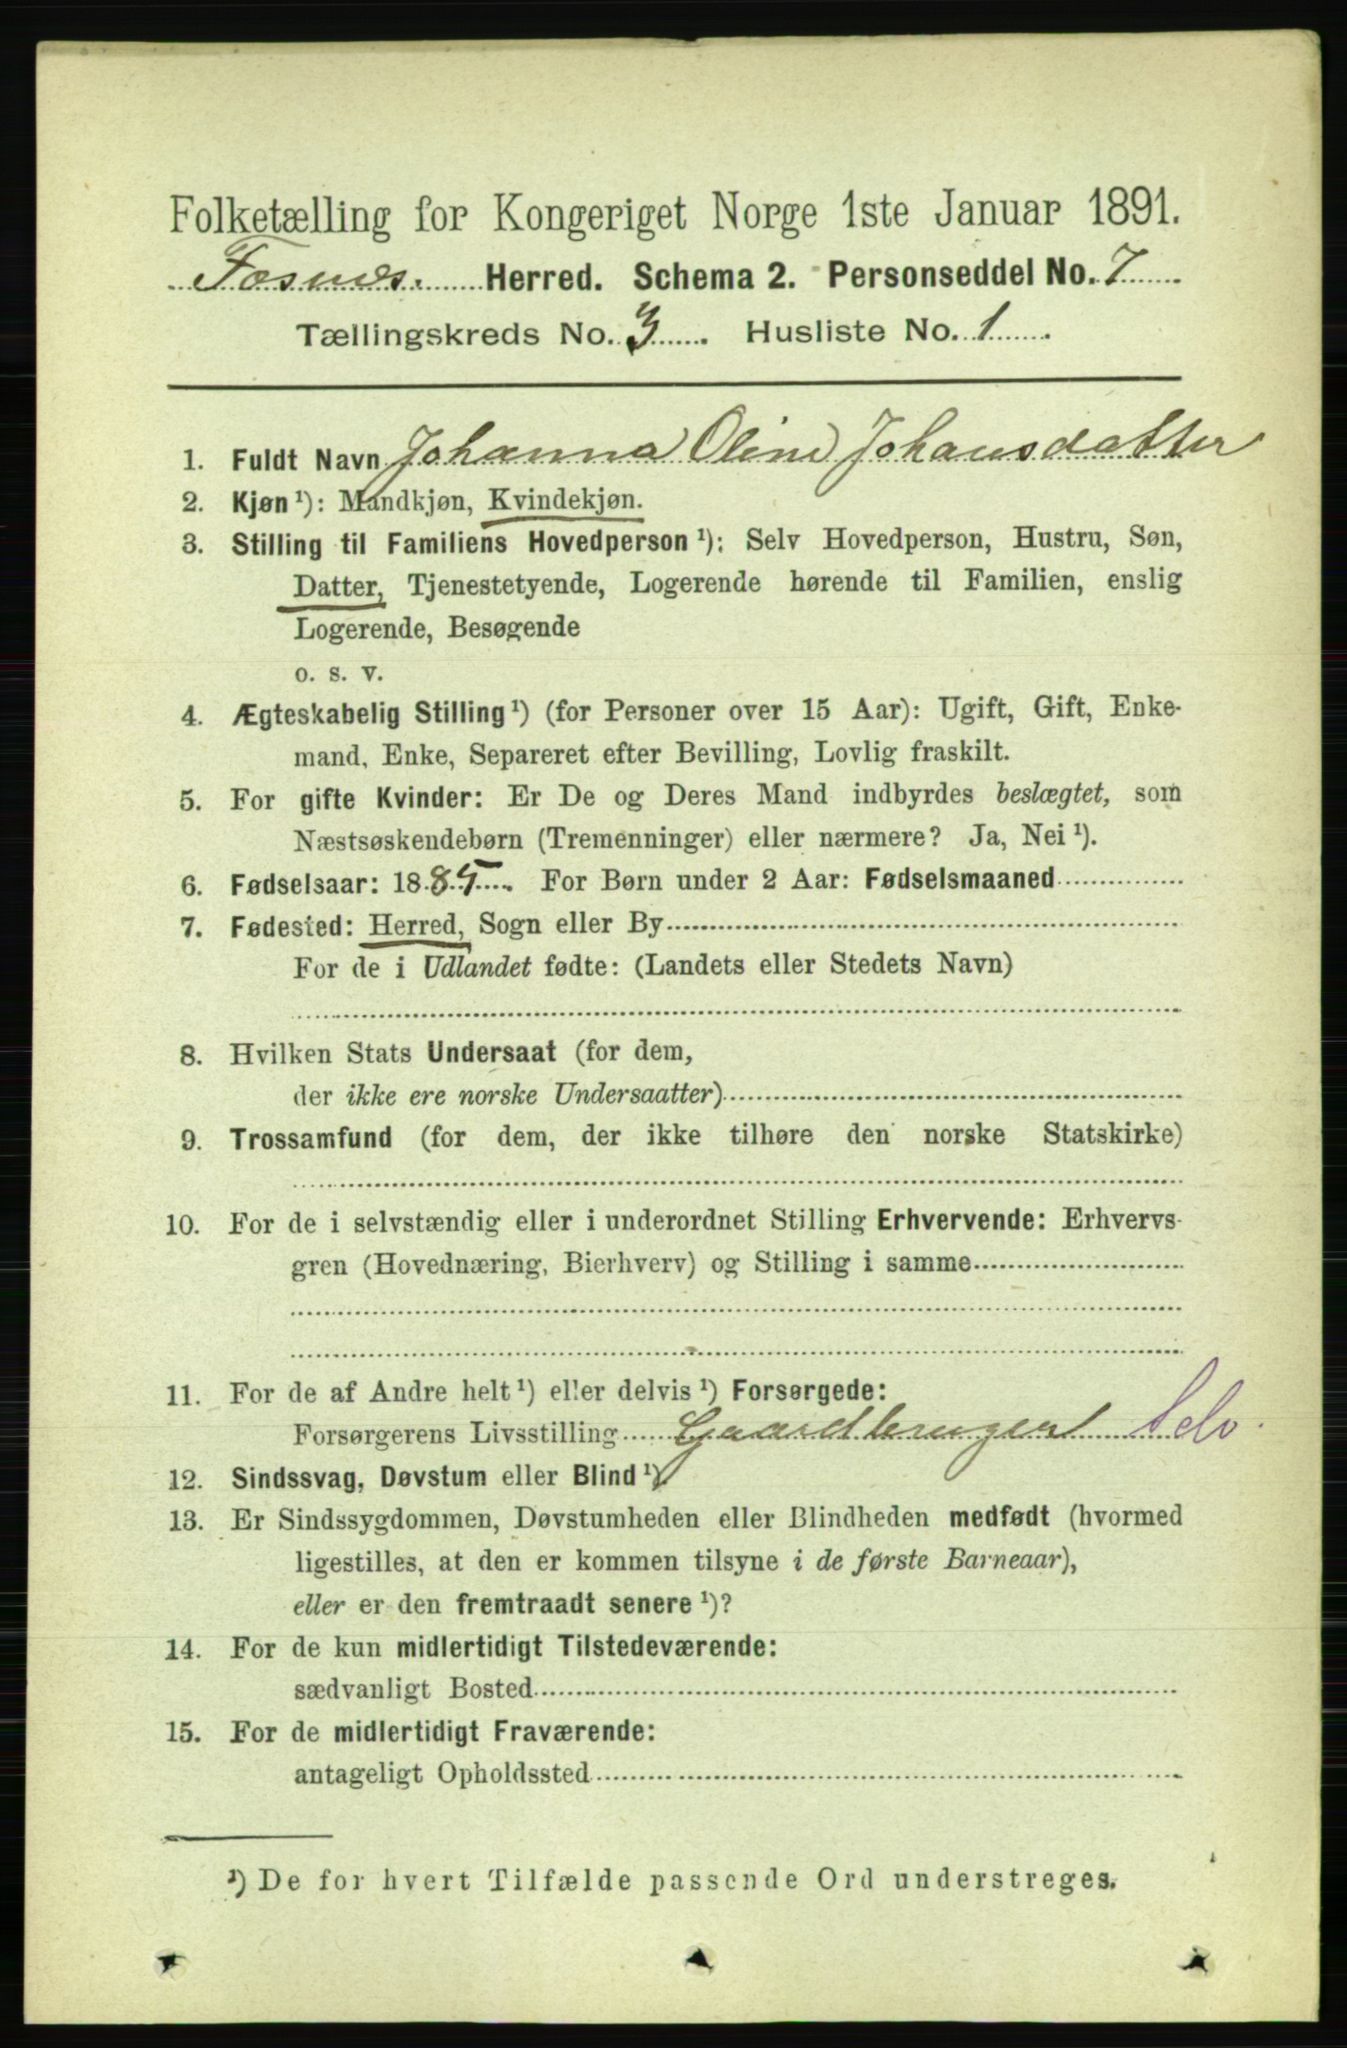 Folketælling for Kongeriget Norge 1ste Januar 1891.
Fosnes. Herred. Schema 2. Personseddel No. 7
Tællingskreds No. 3. Husliste No. 1.
1. Fuldt Navn Johanna Oline Johansdatter
2. Kjøn ¹): Mandkjøn, Kvindekjøn.
3. Stilling til Familiens Hovedperson ¹): Selv Hovedperson, Hustru, Søn,
Datter, Tjenestetyende, Logerende hørende til Familien, enslig
Logerende, Besøgende
o. s. v.
4. Ægteskabelig Stilling ¹) (for Personer over 15 Aar): Ugift, Gift, Enke-
mand, Enke, Separeret efter Bevilling, Lovlig fraskilt.
5. For gifte Kvinder: Er De og Deres Mand indbyrdes beslægtet, som
Næstsøskendebørn (Tremenninger) eller nærmere? Ja, Nei ¹).
6. Fødselsaar: 1885. For Børn under 2 Aar: Fødselsmaaned
7. Fødested: Herred, Sogn eller By
For de i Udlandet fødte: (Landets eller Stedets Navn)
8. Hvilken Stats Undersaat (for dem,
der ikke ere norske Undersaatter)
9. Trossamfund (for dem, der ikke tilhøre den norske Statskirke)
10. For de i selvstændig eller i underordnet Stilling Erhvervende: Erhvervs-
gren (Hovednæring, Bierhverv) og Stilling i samme
11. For de af Andre helt ¹) eller delvis ¹) Forsørgede:
Forsørgerens Livsstilling Gaardbruger Selv.
12. Sindssvag, Døvstum eller Blind ¹)
13. Er Sindssygdommen, Døvstumheden eller Blindheden medfødt (hvormed
ligestilles, at den er kommen tilsyne i de første Barneaar),
eller er den fremtraadt senere ¹)?
14. For de kun midlertidigt Tilstedeværende:
sædvanligt Bosted
15. For de midlertidigt Fraværende:
antageligt Opholdssted
¹) De for hvert Tilfælde passende Ord understreges.